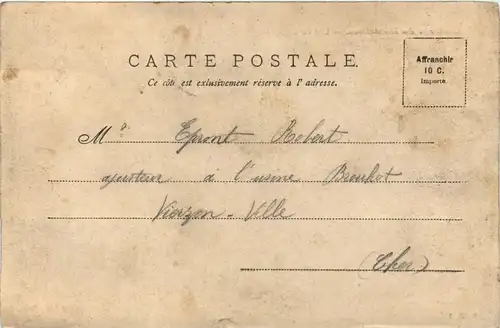 CARTE POSTALE.
Ce côté est exlusivement réservé à l' adresse.
Affranchir
10 C.
Importe.
Mr Epront Robert
ajusteur à l'usine Brouhot
Vierzon-Ville
(Cher)